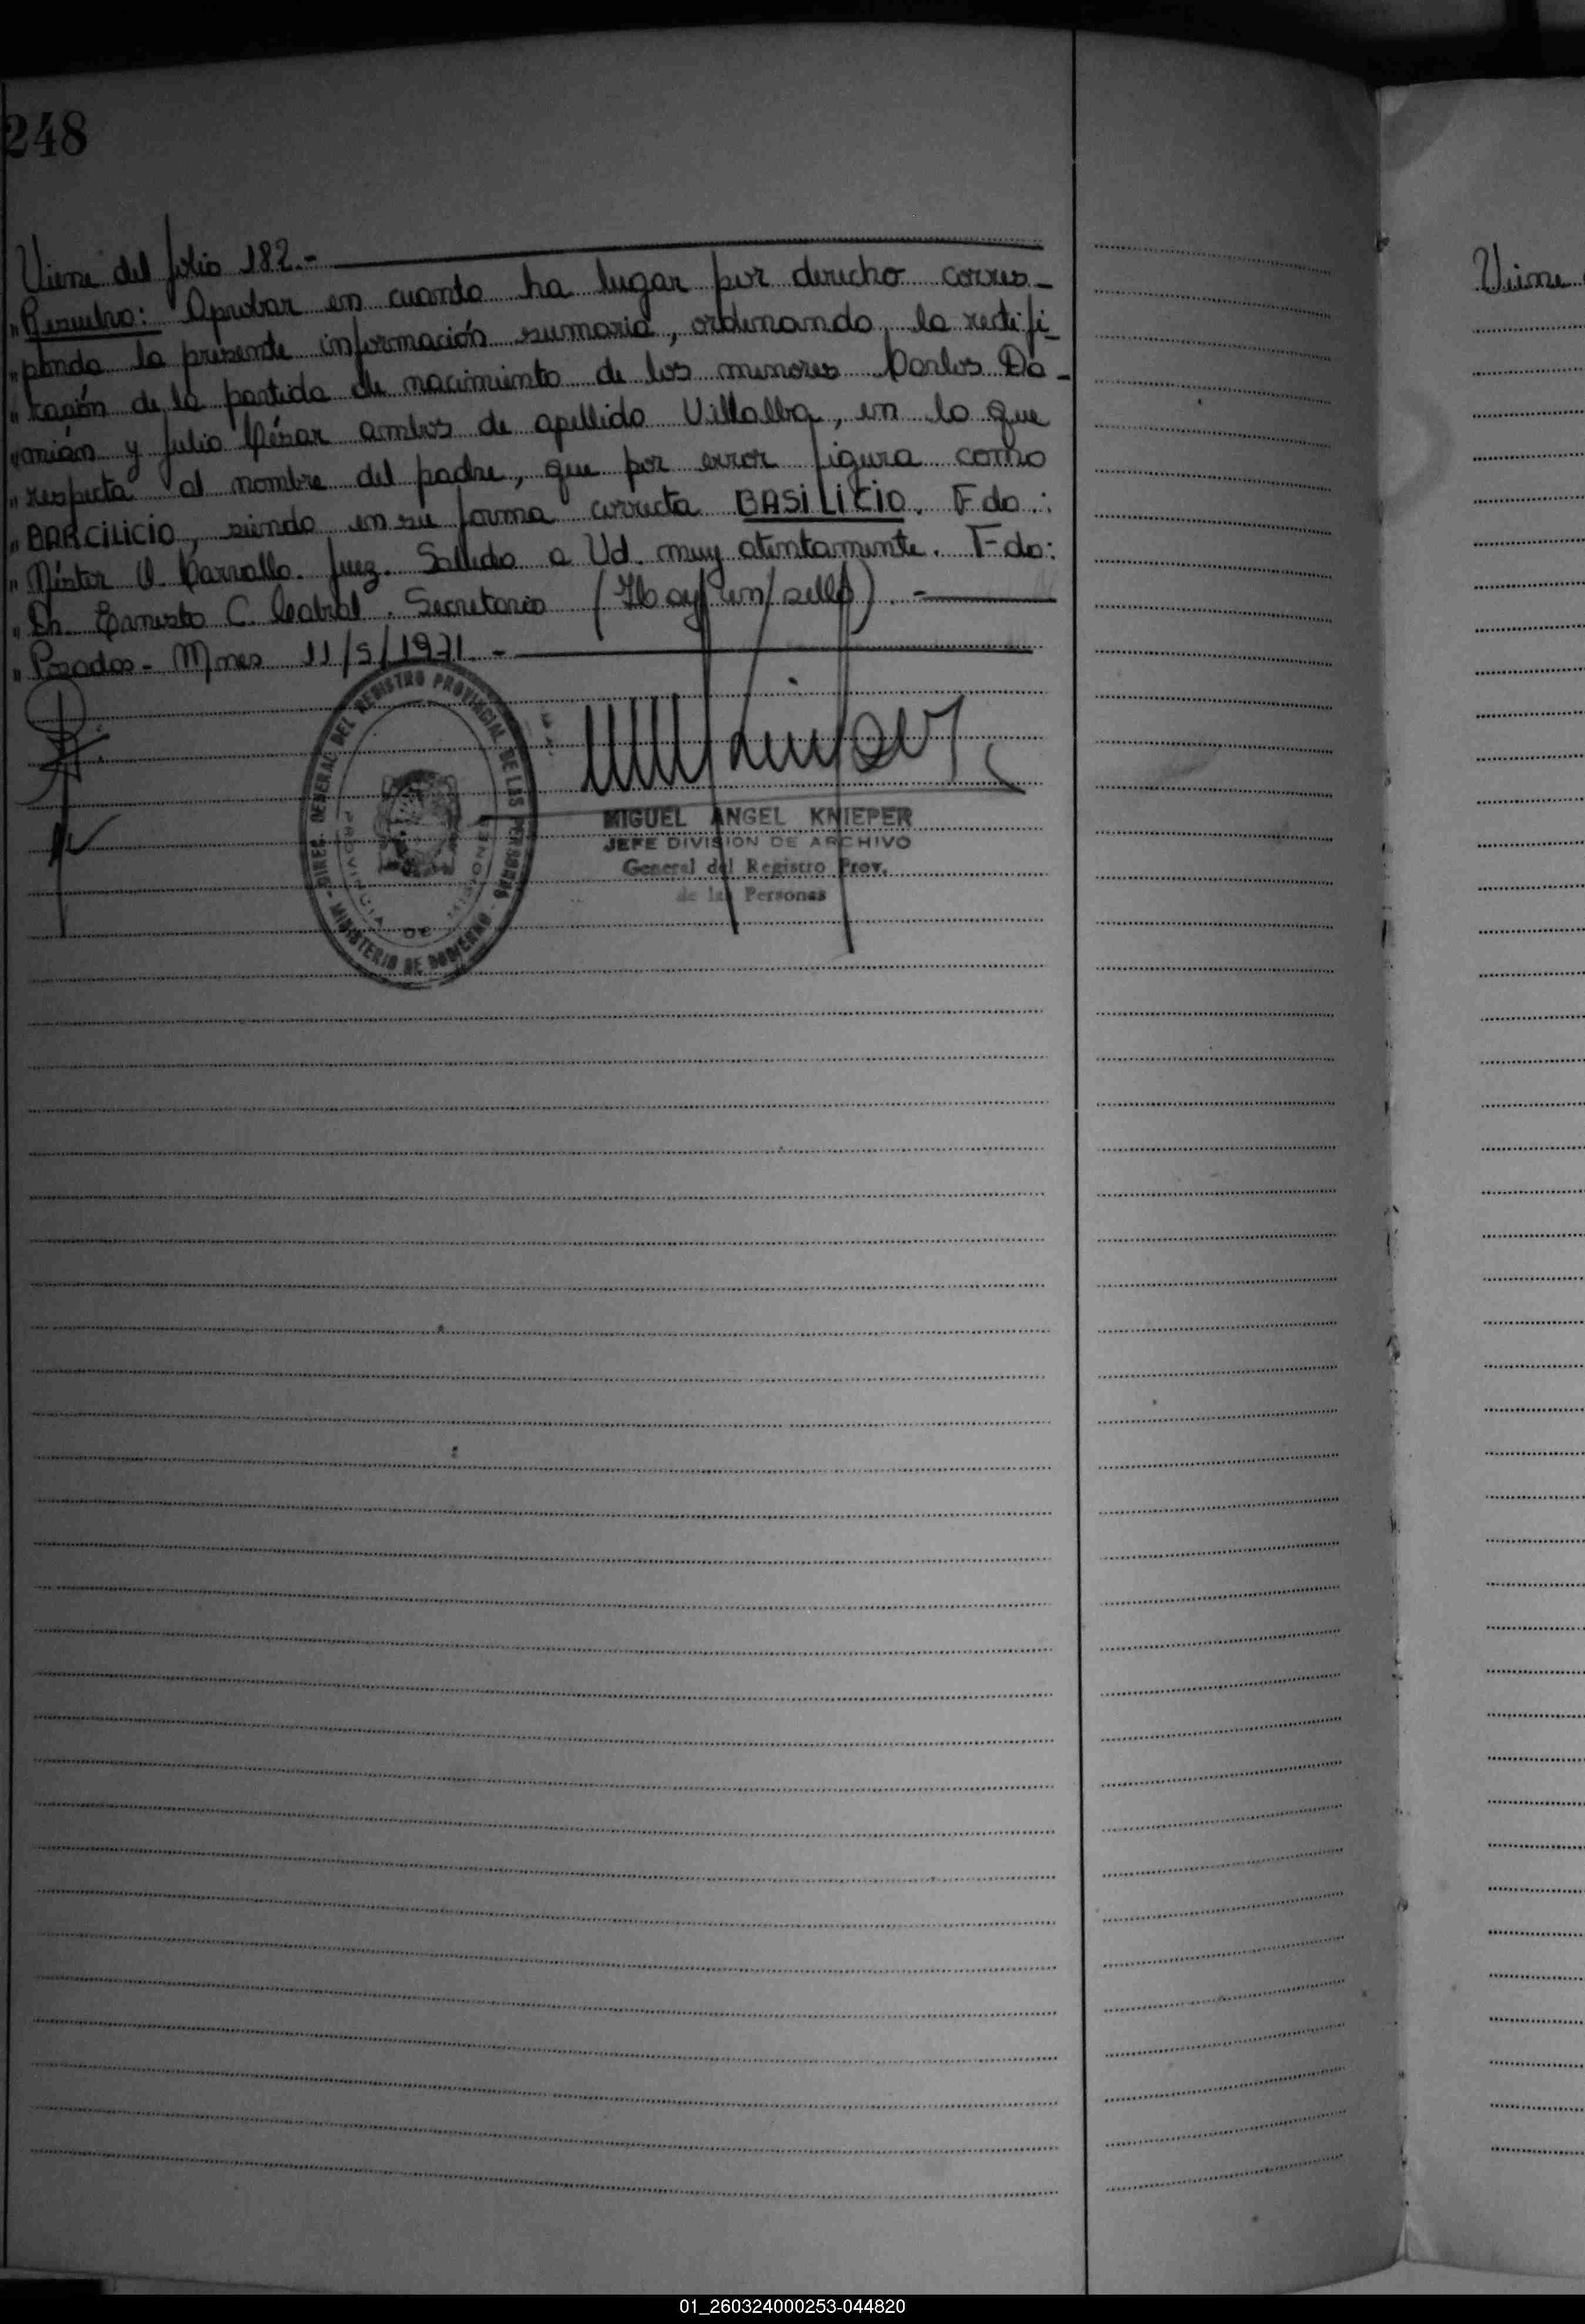 248
Viene del folio 182.-
" Resuelvo: Aprobar en cuanto ha lugar por derecho corres-
" ponda la presente información sumaria, ordenando la rectifi-
" cación de la partida de nacimiento de los menores Carlos Da-
" mián y Julio César ambos de apellido Villalba, en lo que
" respecta al nombre del padre, que por error figura como
" BARCILICIO, siendo en su forma correcta BASILICIO. Fdo.:
" Néstor O. Carvallo. Juez. Saludo a Ud. muy atentamente. Fdo:
" Dr. Ernesto C. Cabral. Secretario (Hay un sello).-
" Posadas - Mnes 11/5/1971.-
DIREC. GENERAL DEL REGISTRO PROVINCIAL DE LAS PERSONAS
- MINISTERIO DE GOBIERNO -
PROVINCIA DE MISIONES
MIGUEL ANGEL KNIEPER
JEFE DIVISION DE ARCHIVO
General del Registro Prov.
de las Personas
Viene
01_260324000253-044820